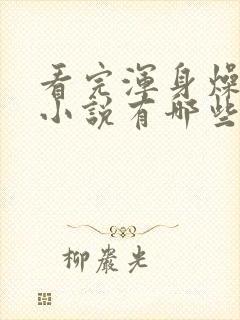 看完渾身燥
小說有哪些
柳嚴光